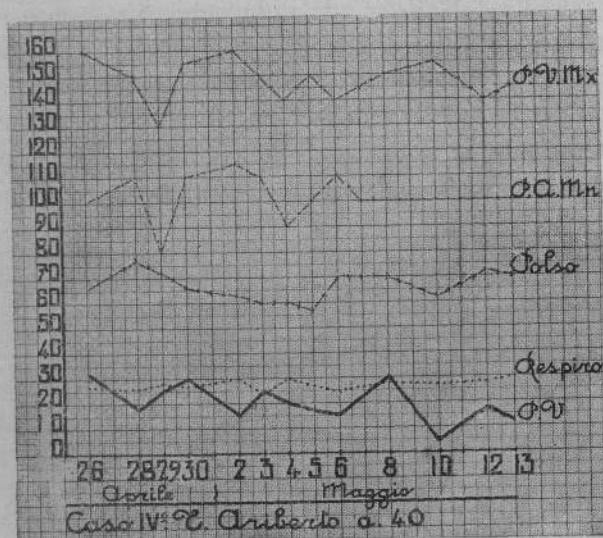 160
150
140
130
120
110
100
90
80
70
60
50
40
30
20
10
0
P.V.Mx
P.A.Mn
Polso
Respiro
P.V
26 28 29 30 2 3 4 5 6 8 10 12 13
Aprile Maggio
Caso IVº C. Ariberto a. 40